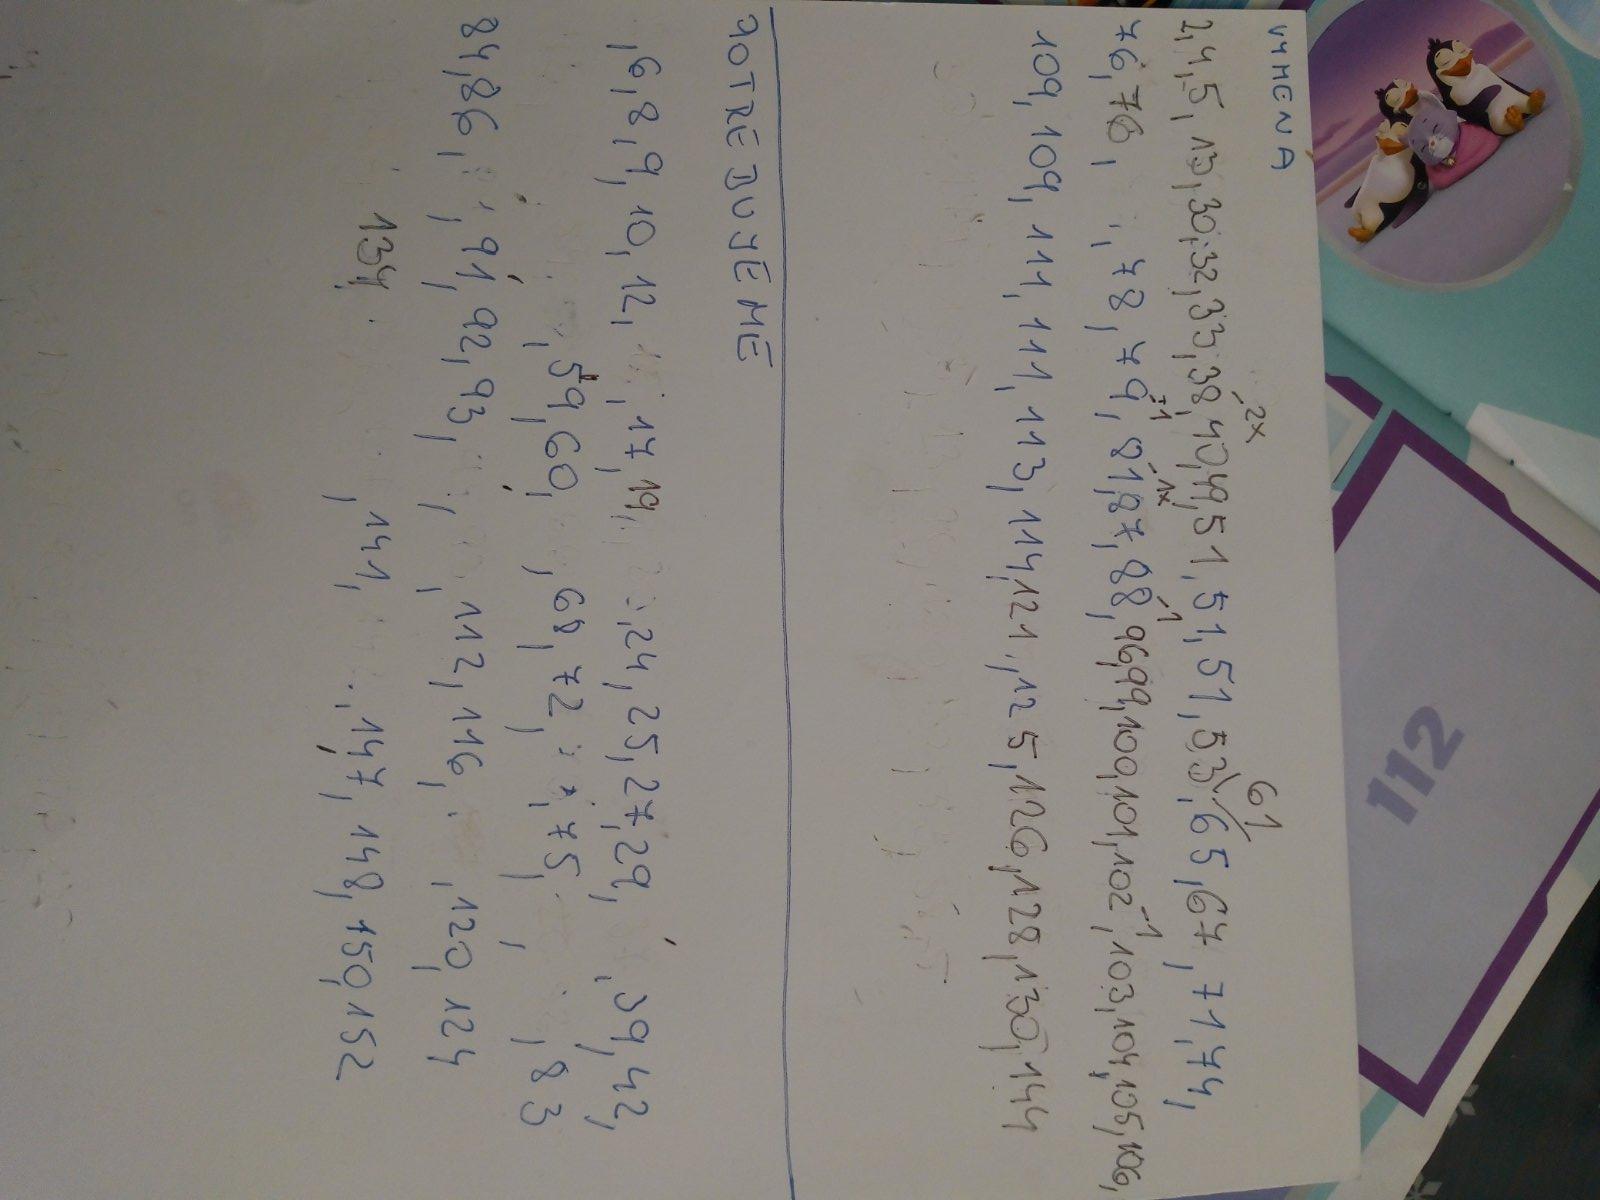 VÝMENA
2x 61
2,4,5,13,30,32,33,38,40,49,51,51,51,53,65,67,71,74,
76,76, 78,79,81,87,88,96,99,100,101,102,103,104,105,106,
+1 1x -1 -1
109,109,111,111,113,114,121,125,126,128,130,144
POTREBUJEME
,6,8,9,10,12, 17,19, 24,25,27,29, 39,42,
,59,60, ,68,72, 75, , ,83
84,86, 91,92,93, 112,116, ,120,124
134, ,141, ,147,148,150,152
112